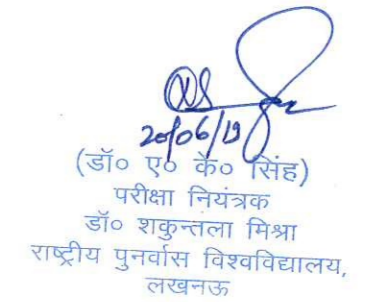 20/06/19
(डॉ० ए० के० सिंह)
परीक्षा नियंत्रक
डॉ० शकुन्तला मिश्रा
राष्ट्रीय पुनर्वास विश्वविद्यालय,
लखनऊ